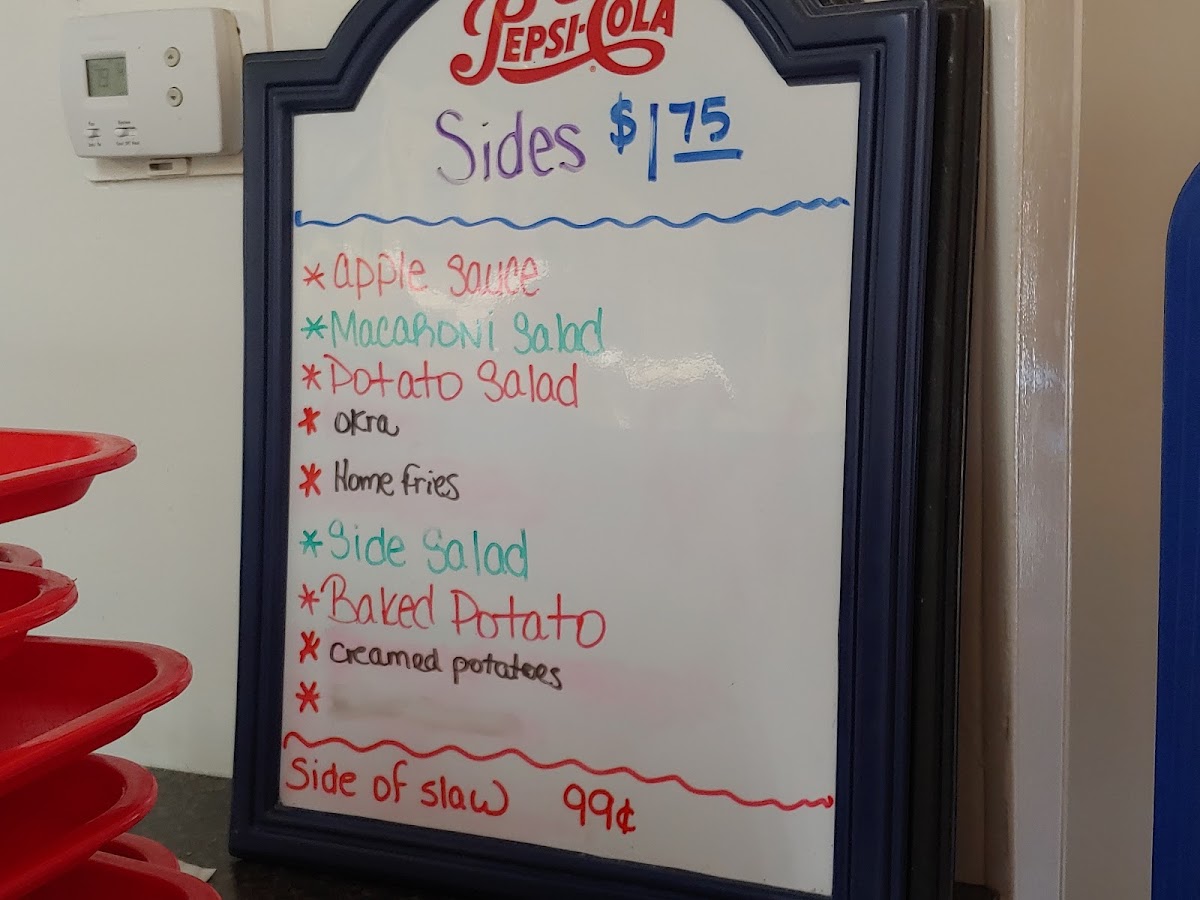 PEPSI-COLA
Sides $1.75
* apple Sauce
* MacaRoNi Salad
* Potato Salad
* okra
* Home fries
* Side Salad
* Baked Potato
* creamed potatoes
*
Side of slaw 99¢